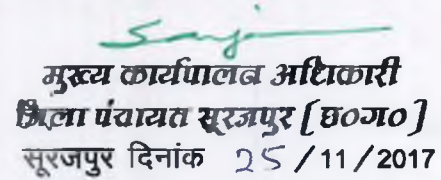 मुख्य कार्यपालन अधिकारी
जिला पंचायत सूरजपुर (छ०ग०)
सूरजपुर दिनांक 25/11/2017